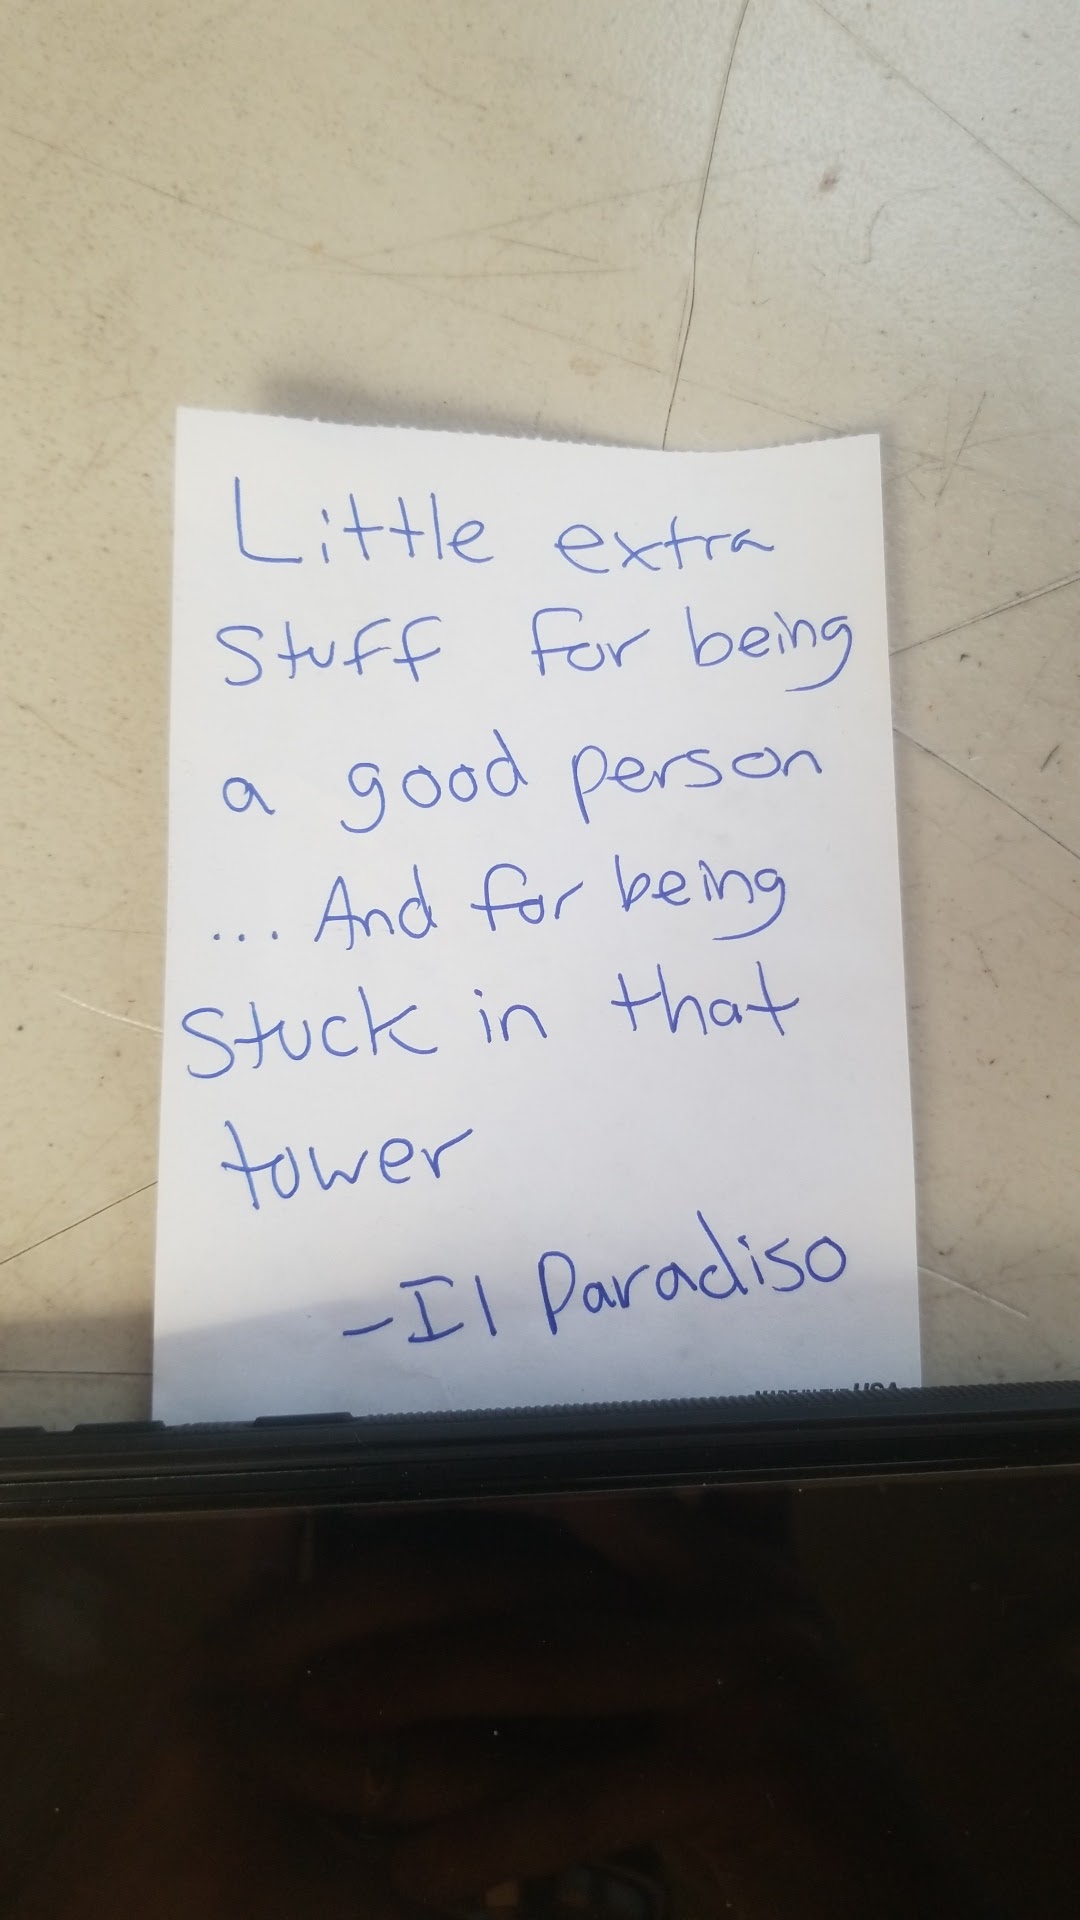 Little extra
Stuff for being
a good person
... And for being
Stuck in that
tower
-Il Paradiso
USA